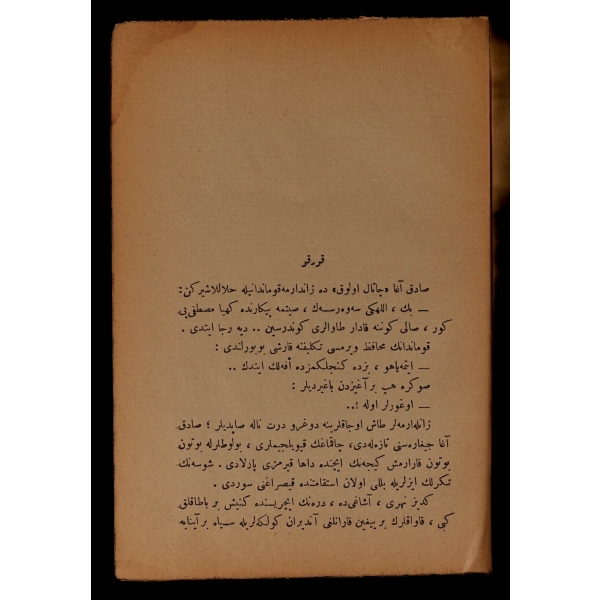 قورقو
صادق آغا «چاتال اولوق» ده ژاندارمه قوماندانیله حلاللاشیركن:
— بك ، اللهكی سه‌وه‌رسه‌ك ، صیتمه پیكارنده كهیا مصطفی یی
كور ، صالی كوننه قادار طاوالری كوندرسین .. دیه رجا ایتدی .
قوماندانك محافظ ویرمسی تكلیفنه قارشی بوبورلندی :
— ایتمه یاهو ، بزده كنجلكمزده أفه‌لك ایتدك ..
صوكره هپ بر آغیزدن باغیردیلر :
— اوغورلر اوله !..
ژاندارمه‌لر طاش اوجاقلرینه دوغرو درت ناله صاپدیلر ؛ صادق
آغا جیغاره‌سنی تازه‌له‌دی، چاقماغك قیویلجیملری ، بولوطلرله بوتون
بوتون قارارمش كیجه‌نك ایچنده داها قیرمزی پارلادی . شوسه‌نك
تكرلك ایزلریله بللی اولان استقامتنده قیصراغنی سوردی .
كدیز نهری ، آشاغی‌ده ، دره‌نك ایچریسنده كنیش بر باطاقلق
كبی ، قاواقلرك بر ییغین قارانلغی آندیران كولكه‌لریله سیاه بر آینایه